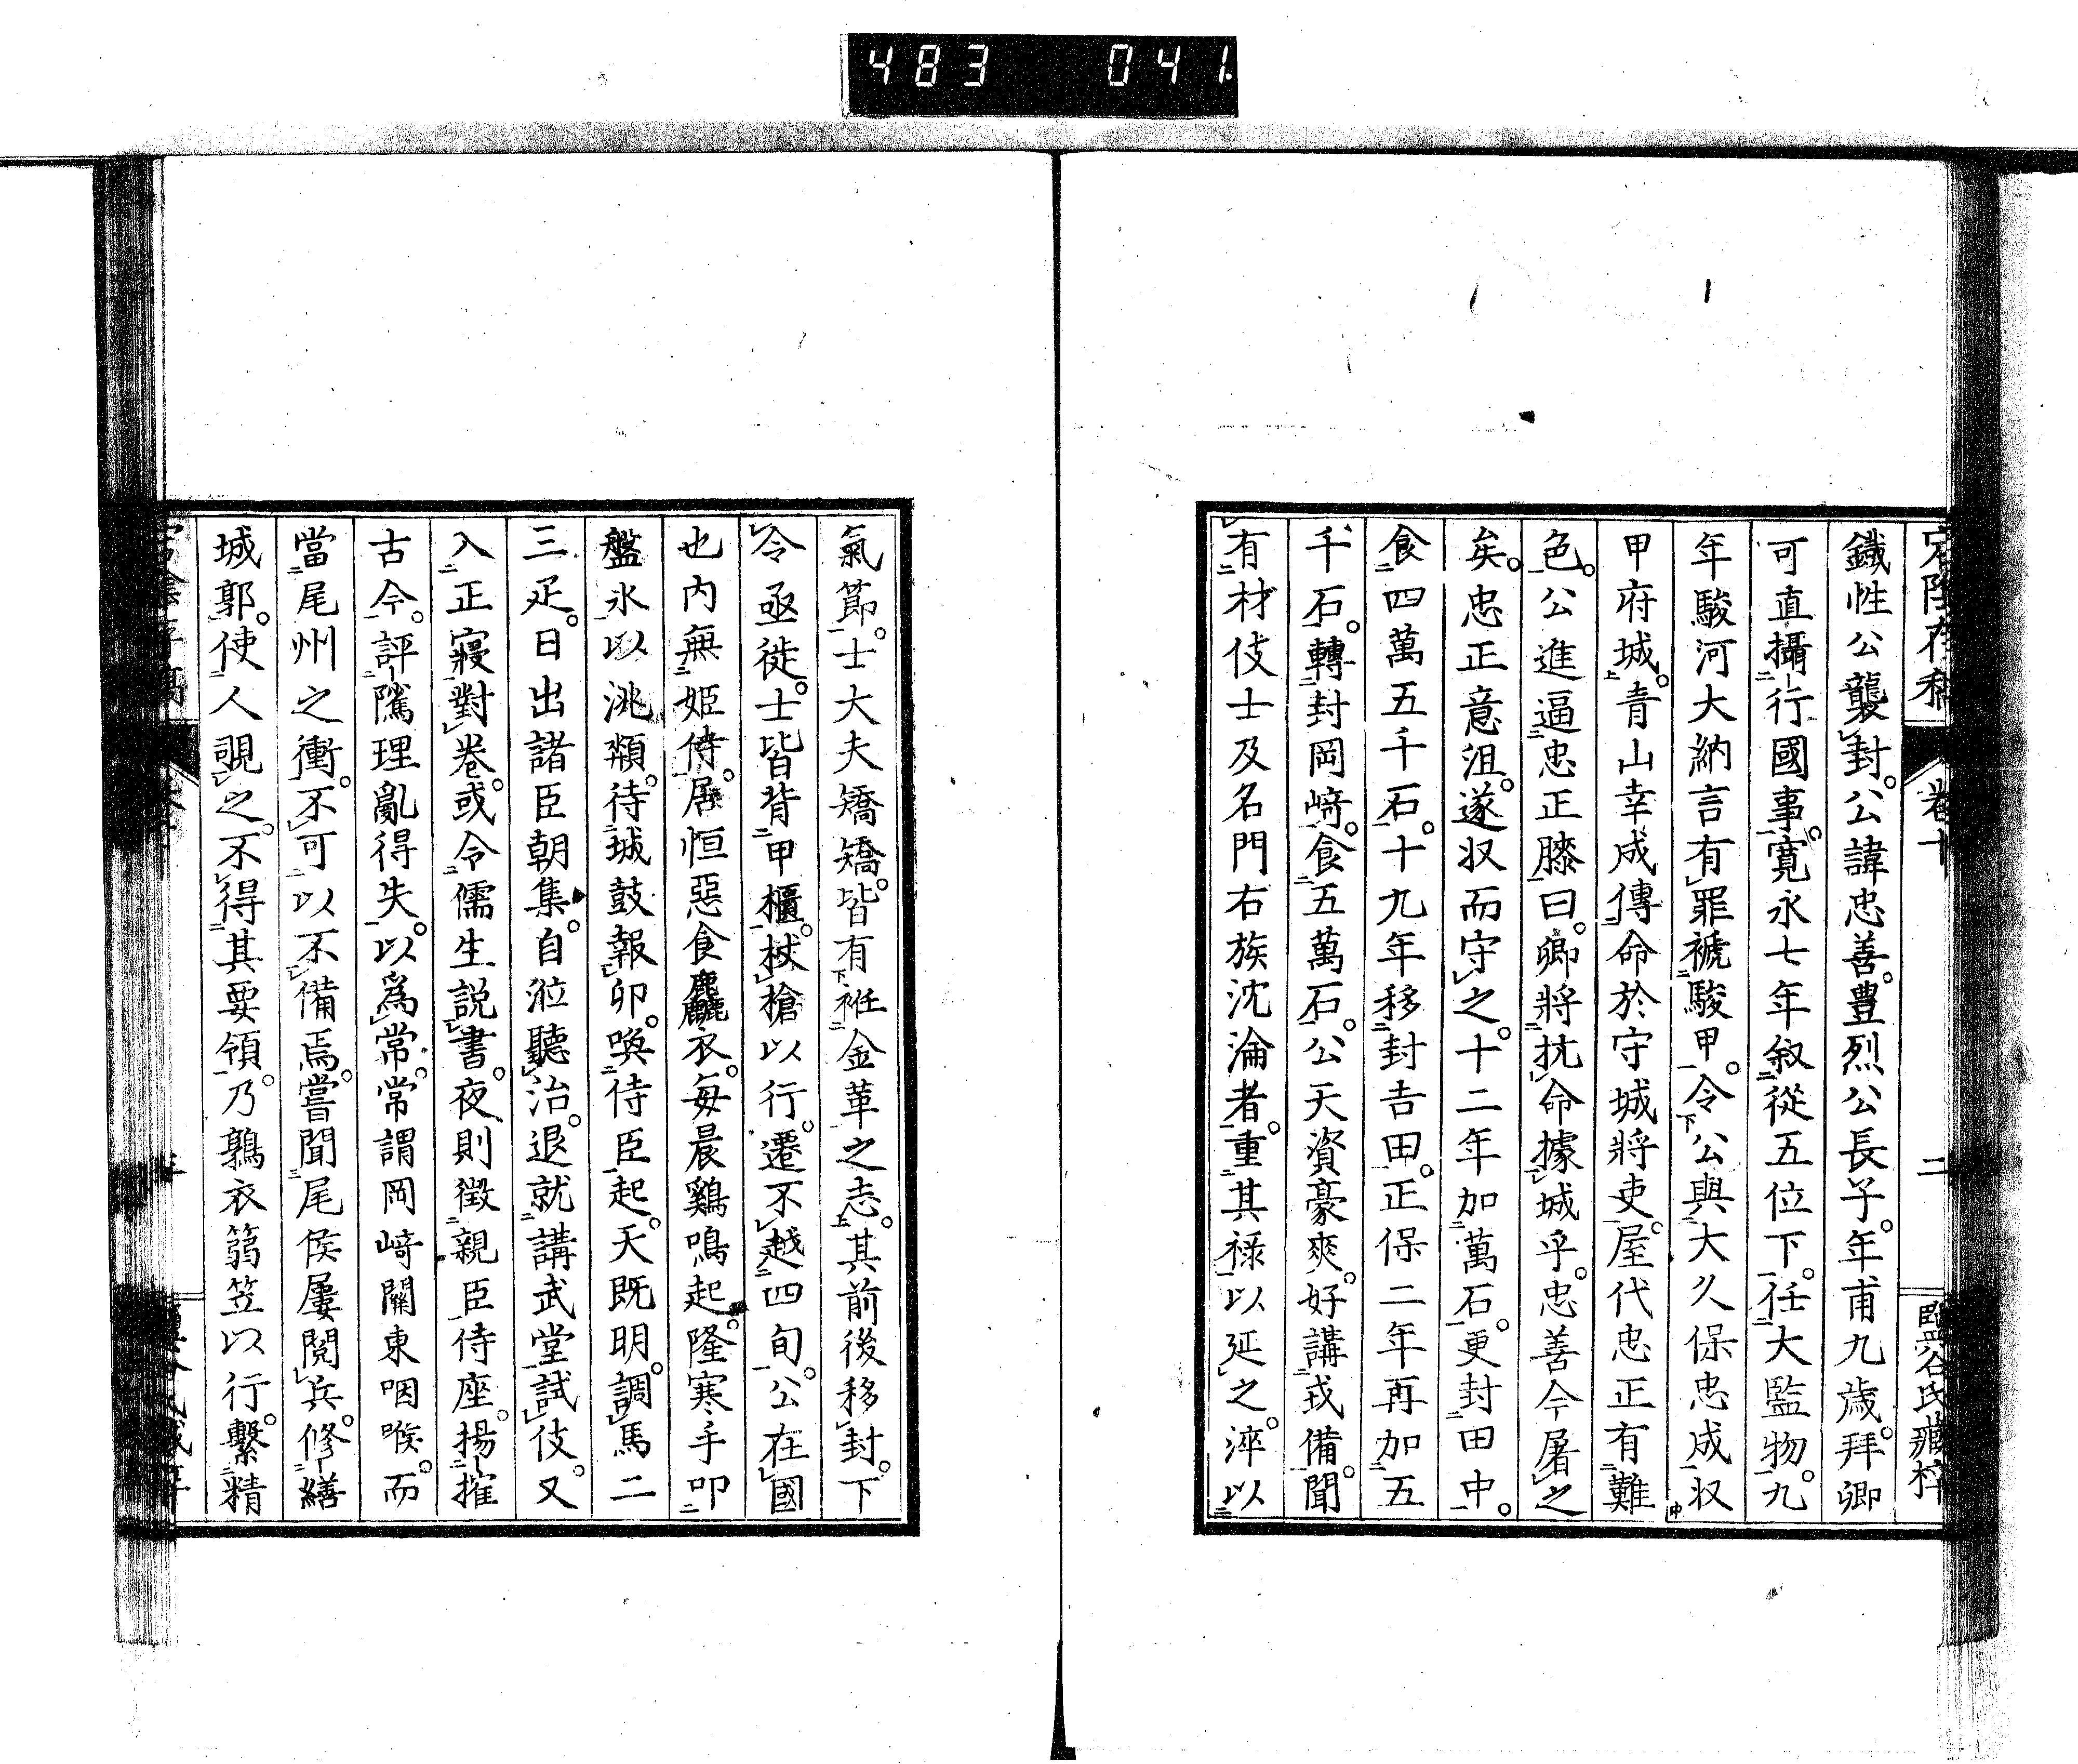 483 041
宕陰存稿 卷十 二 鹽谷氏藏梓
鐵性公襲封。公諱忠善。豊烈公長子。年甫九歲。拜卿
可直攝行國事。寬永七年叙從五位下。任大監物。九
年駿河大納言有罪褫駿甲。令公與大久保忠成収
甲府城。青山幸成傳命於守城將吏。屋代忠正有難
色。公進逼忠正膝曰。卿將抗命據城乎。忠善今屠之
矣。忠正意沮。遂収而守之。十二年加萬石。更封田中。
食四萬五千石。十九年移封吉田。正保二年再加五
千石。轉封岡﨑。食五萬石。公天資豪爽。好講戎備。聞
有材伎士及名門右族沈淪者。重其祿以延之。淬以
氣節。士大夫矯矯。皆有袵金革之志。其前後移封。下
令亟徙。士皆背甲櫃。杖槍以行。遷不越四旬。公在國
也内無姬侍。居恒惡食麤衣。每晨鷄鳴起。隆寒手叩
盤氷以洮頮。待城鼓報卯。喚侍臣起。天既明。調馬二
三疋。日出諸臣朝集。自涖聽治。退就講武堂試伎。又
入正寢對卷。或令儒生説書。夜則徵親臣侍座。揚搉
古今。評隲理亂得失。以爲常。常謂岡﨑關東咽喉。而
當尾州之衝。不可以不備焉。嘗聞尾侯屢閲兵。修繕
城郭。使人覘之。不得其要領。乃鶉衣篛笠以行。繫精